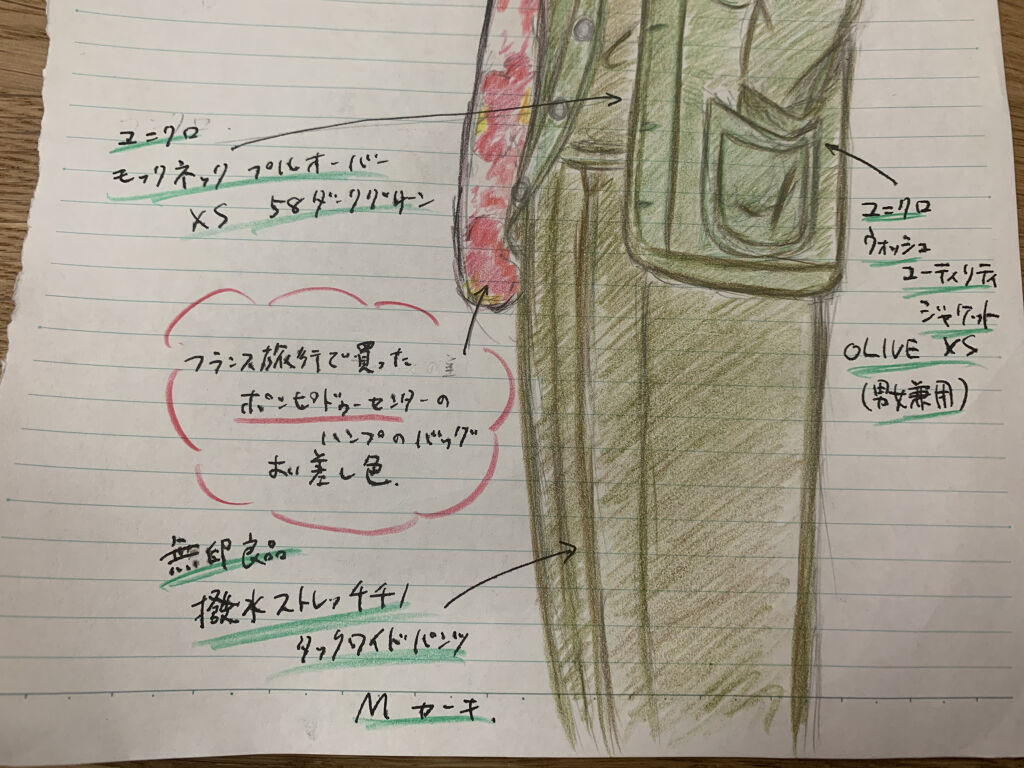 ユニクロ
モックネック プルオーバー
XS 58ダークグリーン
ユニクロ
ウォッシュ
ユーティリティ
ジャケット
OLIVE XS
(男女兼用)
フランス旅行で買った
ポンピドゥーセンターの
ハンプのバッグ
差し色.
無印良品
撥水ストレッチチノ
タックワイドパンツ
M カーキ.